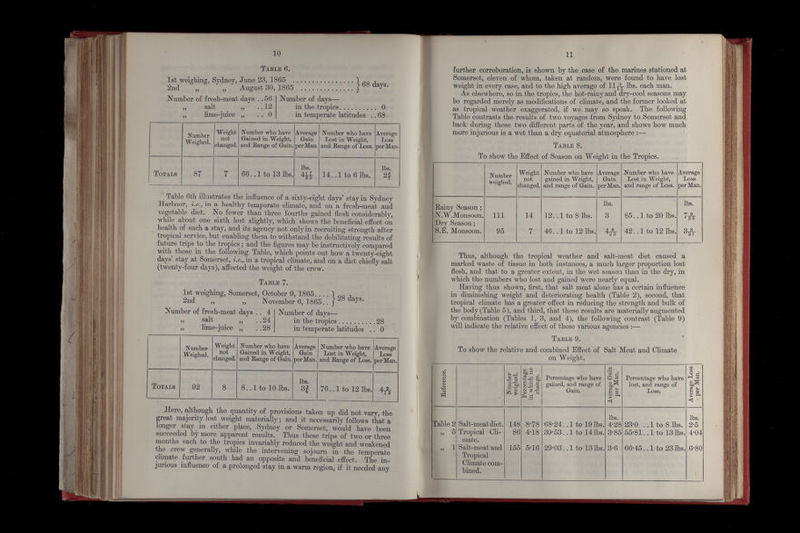 10
TABLE 6.
1st weighing, Sydney, June 23, 1865 .................. } 68 days.
2nd „ „ August 30, 1865 ................
Number of fresh-meat days ..56 | Number of days—
„ salt „ ..12 | in the tropics.......... 0
„ lime-juice „ .. 0 | in temperate latitudes ..68
Number Weighed. | Weight not changed. | Number who have Gained in Weight, and Range of Gain. | Average Gain per Man | Number who have Lost in Weight, and Range of Loss. | Average Loss per Man.
TOTALS | 87 | 7 | 66..1 to 13 lbs. | lbs. 4 | 14..1 to 6 lbs. | lbs. 2
Table 6th illustrates the influence of a sixty-eight days' stay in Sydney
Harbour, i.e., in a healthy temperate climate, and on a fresh-meat and
vegetable diet. No fewer than three fourths gained flesh considerably,
while about one sixth lost slightly, which shows the beneficial effect on
health of such a stay, and its agency not only in recruiting strength after
tropical service, but enabling them to withstand the debilitating results of
future trips to the tropics; and the figures may be instructively compared
with those in the following Table, which points out how a twenty-eight
days' stay at Somerset, i.e., in a tropical climate, and on a diet chiefly salt
(twenty-four days), affected the weight of the crew.
TABLE 7.
1st weighing, Somerset, October 9, 1865.... } 28 days.
2nd „ „ November 6, 1865..
Number of fresh-meat days .. 4 | Number of days—
„ salt „ ..24 | in the tropics..........28
„ lime-juice „ ..28 | in temperate latitudes .. 0
Number Weighed. | Weight not changed. | Number who have Gained in Weight, and Range of Gain. | Average Gain per Man. | Number who have Lost in Weight, and Range of Loss. | Average Loss per Man.
TOTALS | 92 | 8 | 8..1 to 10 lbs. | lbs. 3 | 76..1 to 12 lbs. | 4
Here, although the quantity of provisions taken up did not vary, the
great majority lost weight materially; and it necessarily follows that a
longer stay in either place, Sydney or Somerset, would have been
succeeded by more apparent results. Thus these trips of two or three
months each to the tropics invariably reduced the weight and weakened
the crew generally, while the intervening sojourn in the temperate
climate further south had an opposite and beneficial effect. The in-
jurious influence of a prolonged stay in a warm region, if it needed any
11
further corroboration, is shown by the case of the marines stationed at
Somerset, eleven of whom, taken at random, were found to have lost
weight in every case, and to the high average of 11 lbs. each man.
As elsewhere, so in the tropics, the hot-rainy and dry-cool seasons may
be regarded merely as modifications of climate, and the former looked at
as tropical weather exaggerated, if we may so speak. The following
Table contrasts the results of two voyages from Sydney to Somerset and
back during these two different parts of the year, and shows how much
more injurious is a wet than a dry equatorial atmosphere:—
TABLE 8.
To show the Effect of Season on Weight in the Tropics.
Number weighed. | Weight not changed. | Number who have gained in Weight, and range of Gain. | Average Gain per Man. | Number who have Lost in Weight, and range of Loss. | Average Loss per Man.
Rainy Season; N.W.Monsoon. | 111 | 14 | 12..1 to 8 lbs. | lbs. 3 | 85..1 to 20 lbs. | lbs. 7
Dry Season; S.E. Monsoon. | 95 | 7 | 46..1 to 12 lbs. | 4 | 42..1 to 12 lbs. | 3
Thus, although the tropical weather and salt-meat diet caused a
marked waste of tissue in both instances, a much larger proportion lost
flesh, and that to a greater extent, in the wet season than in the dry, in
which the numbers who lost and gained were nearly equal.
Having thus shown, first, that salt meat alone has a certain influence
in diminishing weight and deteriorating health (Table 2), second, that
tropical climate has a greater effect in reducing the strength and bulk of
the body (Table 5), and third, that these results are materially augmented
by combination (Tables 1, 3, and 4), the following contrast (Table 9)
will indicate the relative effect of these various agencies:—
TABLE 9.
To show the relative and combined Effect of Salt Meat and Climate
on Weight.
Reference. | Number weighed. | Percentage in which no change. | Percentage who have gained, and range of Gain. | Average Gain per Man. | Percentage who have lost, and range of Loss. | Average Loss per Man.
Table 2 | Salt-meat diet. | 148 | 8·78 | 68·24..1 to 19 lbs. | lbs. 4·28 | 23·0 ..1 to 8 lbs. | lbs. 2·5
„ 5 | Tropical Climate. | 86 | 4·18 | 39·53..1 to 14 lbs. | 3·85 | 55·81..1 to 13 lbs. | 4·04
„ 1 | Salt-meat and Tropical Climate combined. | 155 | 5·16 | 29·03..1 to 13 lbs. | 3·6 | 66·45..1 to 23 lbs. | 6·80